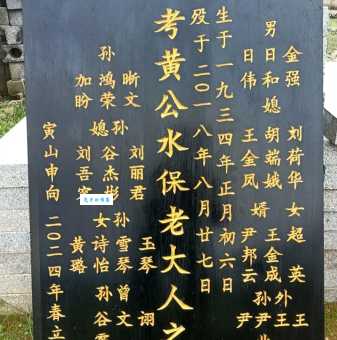 金强 刘荷华 女 超英 王
男日和媳胡端娥 婿 王金成 外王
日伟 王金凤 尹邦云 孙尹
生于一九三四年正月初六日
殁于二〇一八年八月廿七日
考黄公水保老大人之
晰文 刘丽君 玉琴 诩
孙鸿荣 媳孙谷杰彬 孙雪琴 曾文
加盼 刘吾 女诗怡 孙谷
黄璐
寅山申向 二〇二四年春立